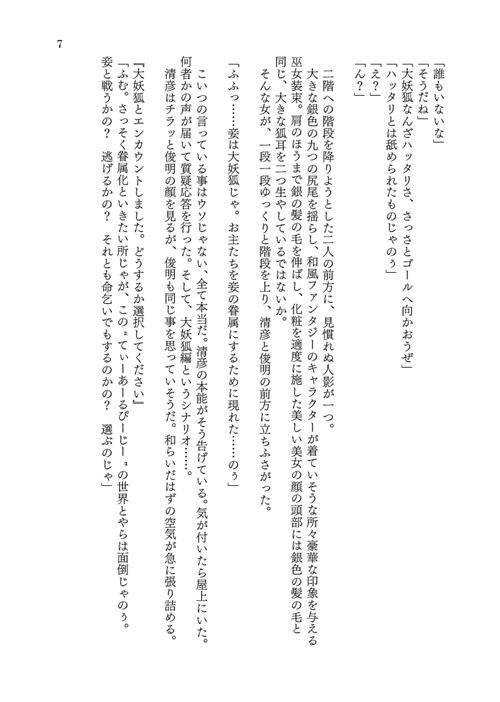 「誰もいないな」
「そうだね」
「大妖狐なんざハッタリさ、さっさとゴールへ向かおうぜ」
「ハッタリとは舐められたものじゃのぅ」
「え？」
「ん？」
二階への階段を降りようとした二人の前方に、見慣れぬ人影が一つ。
大きな銀色の九つの尻尾を揺らし、和風ファンタジーのキャラクターが着ていそうな所々豪華な印象を与える
巫女装束。肩のほうまで銀の髪の毛を伸ばし、化粧を適度に施した美しい美女の顔の頭部には銀色の髪の毛と
同じ、大きな狐耳を二つ生やしているではないか。
そんな女が、一段一段ゆっくりと階段を上り、清彦と俊明の前方に立ちふさがった。
「ふふっ……妾は大妖狐じゃ。お主たちを妾の眷属にするために現れた……のぅ」
こいつの言っている事はウソじゃない、全て本当だ。清彦の本能がそう告げている。気が付いたら屋上にいた。
何者かの声が届いて質疑応答を行った。そして、大妖狐編というシナリオ……。
清彦はチラッと俊明の顔を見るが、俊明も同じ事を思っていそうだ。和らいだはずの空気が急に張り詰める。
『大妖狐とエンカウントしました。どうするか選択してください』
「ふむ。さっそく眷属化といきたい所じゃが、この〝てぃーあーるぴーじー〟の世界とやらは面倒じゃのぅ。
妾と戦うのか？　逃げるのか？　それとも命乞いでもするのかの？　選ぶのじゃ」
7